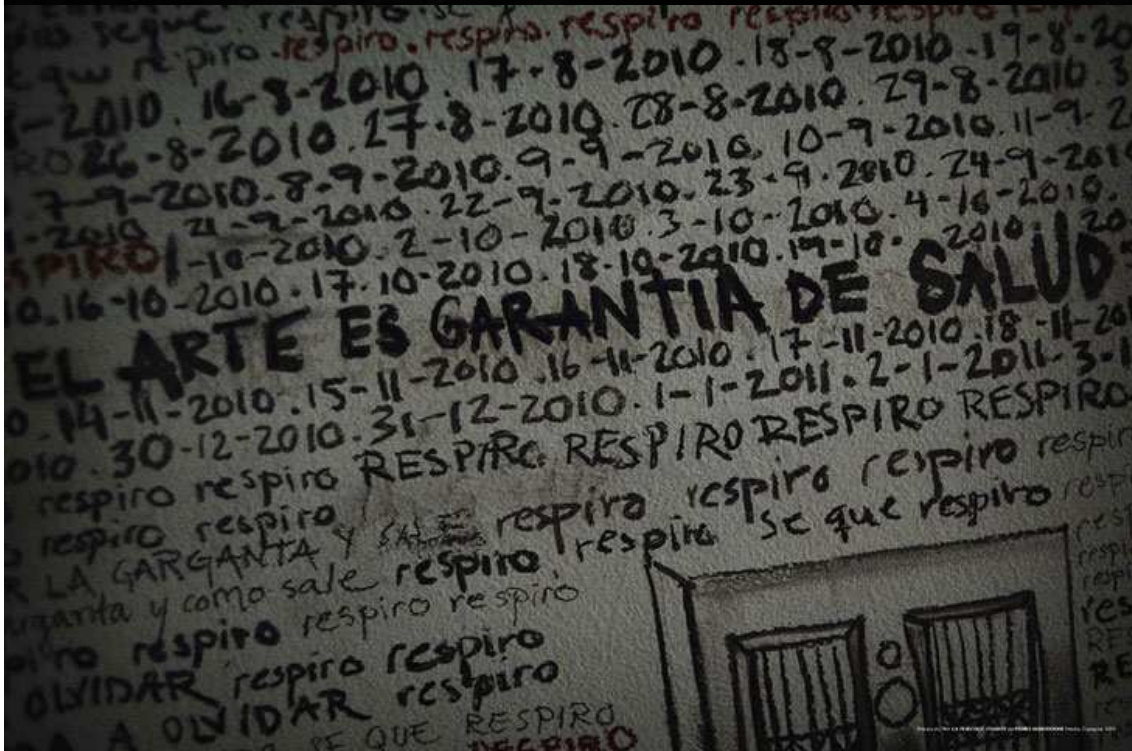 se que respiro se
que respiro.respiro.respiro.respiro respiro respiro
-2010.16-8-2010.17-8-2010.18-8-2010.19-8-20
RO 26-8-2010.27-8-2010.28-8-2010.29-8-2010.3
.7-9-2010.8-9-2010.9-9-2010.10-9-2010.11-9-2
-2010 21-9-2010.22-9-2010.23-9-2010.24-9-2010
SPIRO 1-10-2010.2-10-2010.3-10-2010.4-10-2010.
0.16-10-2010.17.10-2010.18-10-2010.19-10-2010.20
EL ARTE ES GARANTIA DE SALUD
0.14-11-2010.15-11-2010.16-11-2010.17-11-2010.18-11-20
010.30-12-2010.31-12-2010.1-1-2011.2-1-2011-3-1
respiro respiro RESPIRO RESPIRO RESPIRO RESPIRO
respiro respiro respira respiro respiro respir
R LA GARGANTA Y SALE respiro se que respiro
rganta y como sale respiro
piro respiro respiro respiro
OLVIDAR respiro respiro
A A OLVIDAR respiro
QUE RESPIRO
RESPIRO